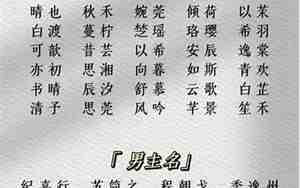 晴也 秋禾 婉莞 倾荷 以茉
白渡 蔓柠 竺瑶 珞璎 希羽
可歆 昔芸 以希 安辰 逸棠
亦初 思湘 向暮 如斯 青欢
书晴 辰汐 舒慕 云歌 白芷
清子 思莞 风吟 芊景 笙禾
「男主名」